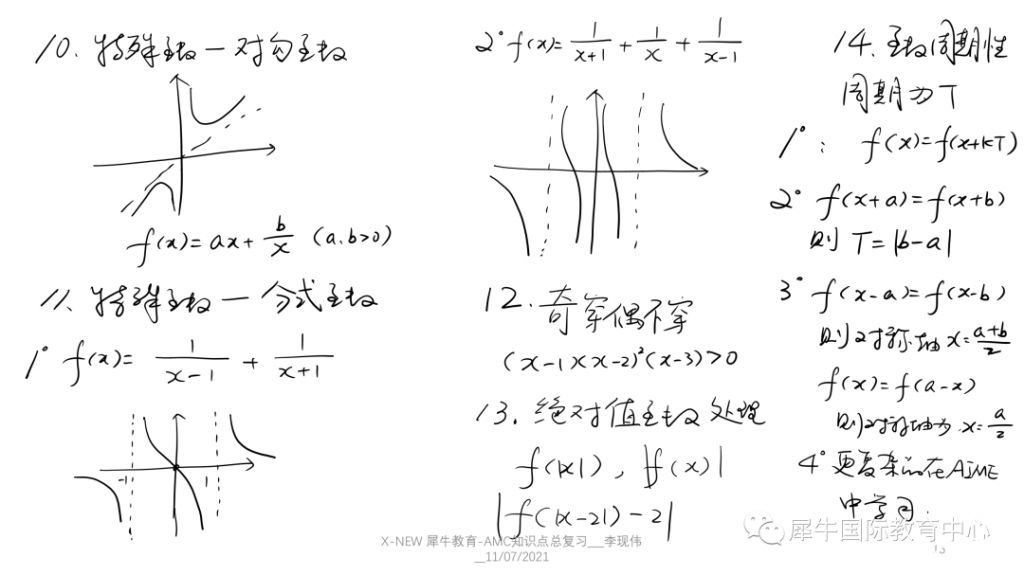 10. 特殊函数—对勾函数
f(x)=ax+b/x (a.b>0)
11. 特殊函数—分式函数
1° f(x)= 1/(x-1) + 1/(x+1)
-1 1
2° f(x)= 1/(x+1) + 1/x + 1/(x-1)
12. 奇穿偶不穿
(x-1)(x-2)²(x-3)>0
13. 绝对值函数处理
f(|x|), |f(x)|
|f(|x-2|)-2|
14. 函数周期性
周期为T
1°: f(x)=f(x+kT)
2° f(x+a)=f(x+b)
则 T=|b-a|
3° f(x-a)=f(x-b)
则对称轴 x=(a+b)/2
f(x)=f(a-x)
则对称轴为 x=a/2
4° 更复杂的在AIME
中学习.
犀牛国际教育中心
X-NEW 犀牛教育-AMC知识点总复习__李现伟
__11/07/2021
13